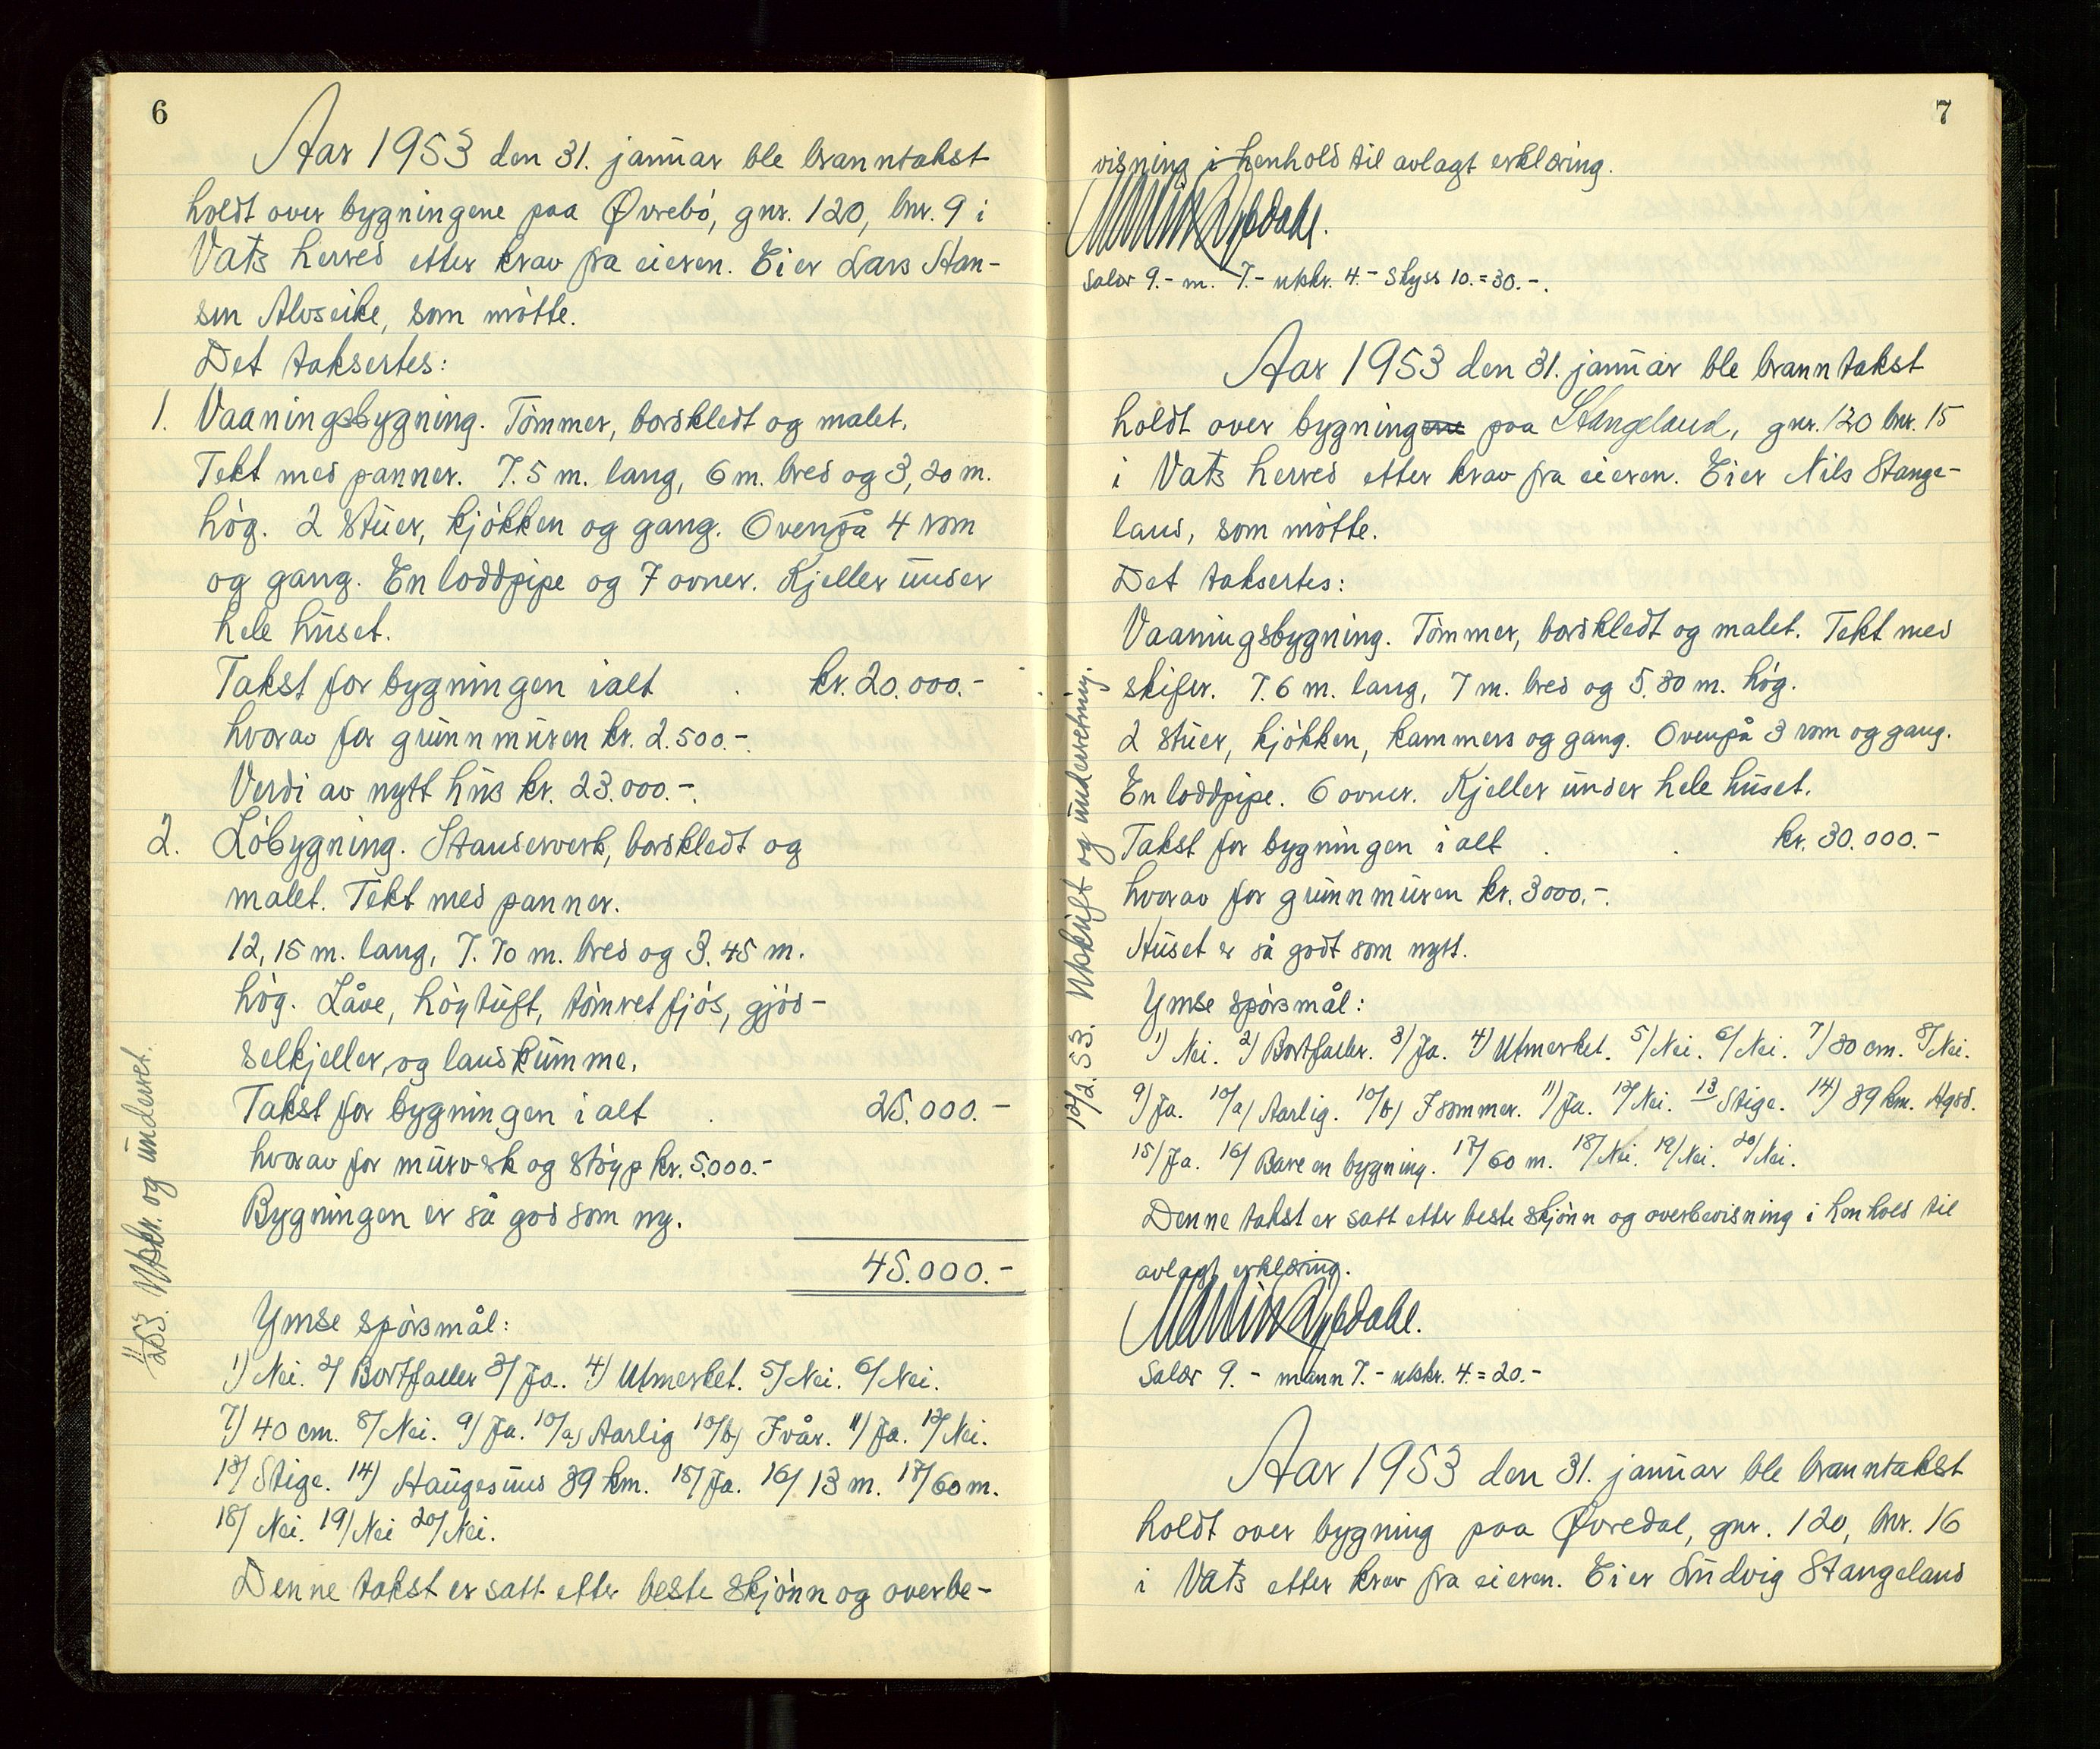 6
Aar 1953 den 31. januar ble branntakst
holdt over bygningene paa Øvrebö, gnr. 120, bnr. 9 i
Vats herred etter krav fra eieren. Eier Lars Han-
sen Alvseike, som mötte.
Det taksertes:
1. Vaaningsbygning. Tömmer, bordkledt og malet.
Tekt med panner. 7.5 m. lang, 6 m. bred og 3,20 m.
hög. 2 stuer, kjökken og gang. Ovenpå 4 rom
og gang. En loddpipe og 7 ovner. Kjeller under
hele huset.
Takst for bygningen ialt . kr. 20.000.-
hvorav for grunnmuren kr. 2.500.-.
Verdi av nytt hus kr. 23.000.-.
2. Löbygning. Standerverk, bordkledt og
malet. Tekt med panner.
12,15 m. lang, 7.70 m. bred og 3.45 m.
hög. Låve, höytuft, tömret fjös, gjöd-
selkjeller, og landkumme.
Takst for bygningen i alt . 25.000.-
hvorav for murverk og stöyp kr. 5.000.-
Bygningen er så god som ny.
45.000.-
Ymse spörsmål:
1) Nei. 2/ Bortfaller 3/ Ja. 4/ Utmerket. 5/ Nei. 6/ Nei.
7/ 40 cm. 8/ Nei. 9/ Ja. 10/a) Aarlig 10/b) I vår. 11/ Ja. 12/ Nei.
13/ Stige. 14) Haugesund 39 km. 15/ Ja. 16/ 13 m. 17/ 60 m.
18/ Nei. 19/ Nei 20/ Nei.
Denne takst er satt etter beste skjönn og overbe-
11/2 53. Utskr. og underret.
7
visning i henhold til avlagt erklæring.
Martin Dybdahl.
Salær 9.- m. 7.- utskr. 4.- Skyss 10. = 30.-.
Aar 1953 den 31. januar ble branntakst
holdt over bygningene paa Stangeland, gnr. 120 bnr. 15
i Vats herred etter krav fra eieren. Eier Nils Stange-
land, som mötte.
Det taksertes:
Vaaningsbygning. Tömmer, bordkledt og malet. Tekt med
skifer. 7.6 m. lang, 7 m. bred og 5.80 m. hög.
2 stuer, kjökken, kammers og gang. Ovenpå 3 rom og gang.
En loddpipe. 6 ovner. Kjeller under hele huset.
Takst for bygningen i alt . . kr. 30.000.-
hvorav for grunnmuren kr. 3000.-.
Huset er så godt som nytt.
Ymse spörsmål:
1) Nei. 2/ Bortfaller. 3/ Ja. 4/ Utmerket. 5/ Nei. 6/ Nei. 7/ 80 cm. 8/ Nei.
9/ Ja. 10/a) Aarlig. 10/b) I sommer. 11/ Ja. 12/ Nei. 13 Stige. 14) 39 km. Hgsd.
15/ Ja. 16/ Bare en bygning. 17/ 60 m. 18/ Nei. 19/ Nei. 20/ Nei.
Denne takst er satt etter beste skjönn og overbevisning i henhold til
avlagt erklæring.
Martin Dybdahl.
Salær 9.- mann 7.- utskr. 4. = 20.-
12/2.53. Utskrift og underretning.
Aar 1953 den 31. januar ble branntakst
holdt over bygning paa Øvredal, gnr. 120, bnr. 16
i Vats etter krav fra eieren. Eier Ludvig Stangeland